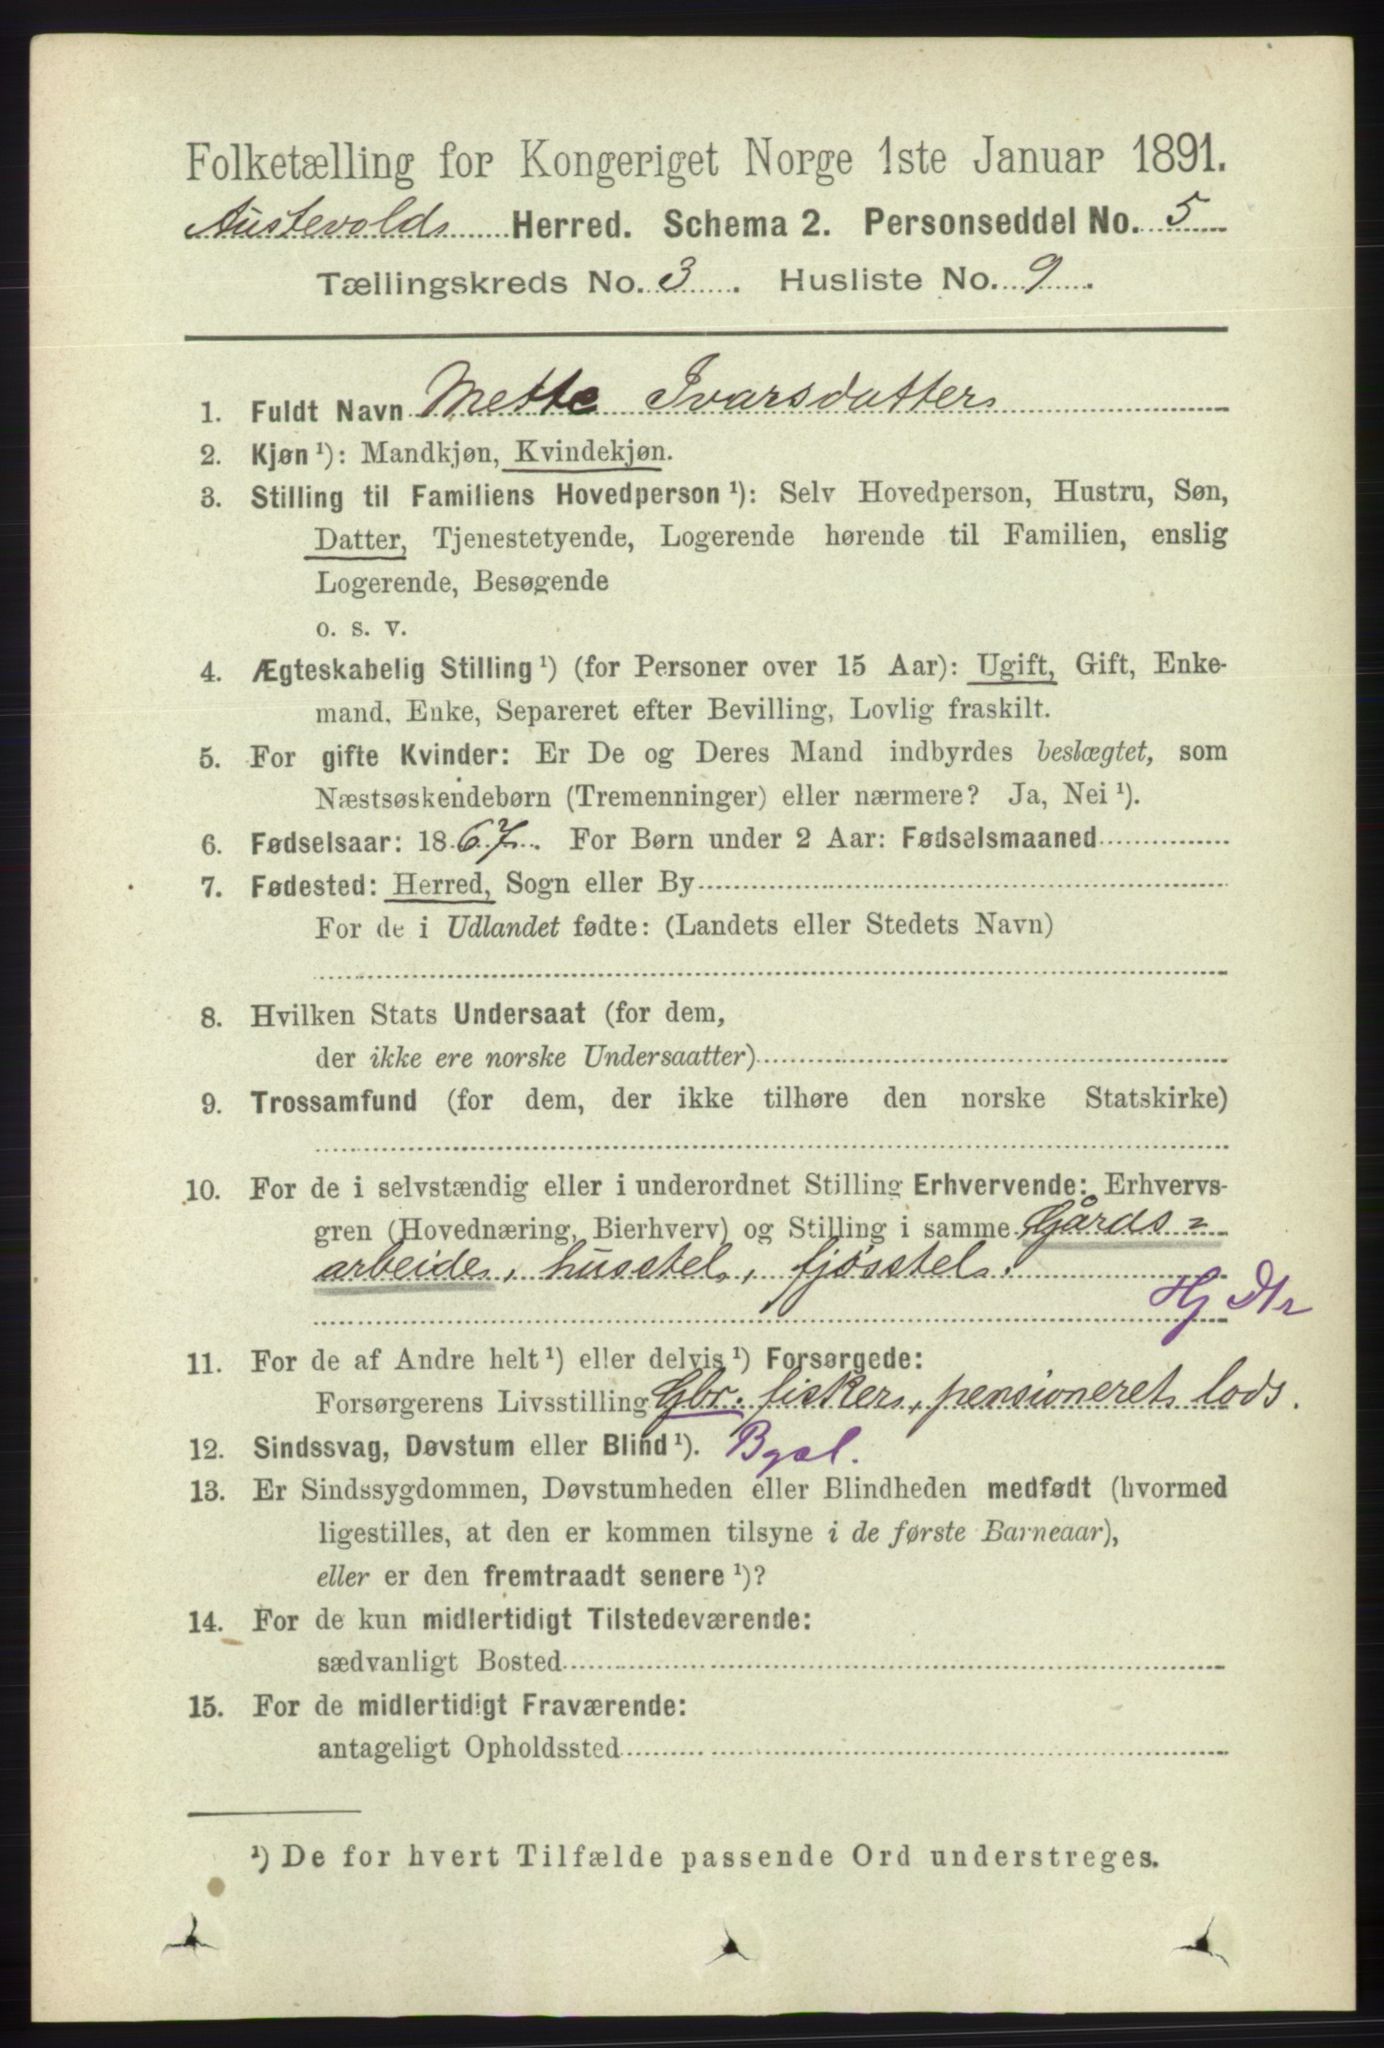 Folketælling for Kongeriget Norge 1ste Januar 1891.
Austevolds Herred. Schema 2. Personseddel No. 5
Tællingskreds No. 3. Husliste No. 9.
1. Fuldt Navn Mette Ivarsdatter
2. Kjøn ¹): Mandkjøn, Kvindekjøn.
3. Stilling til Familiens Hovedperson ¹): Selv Hovedperson, Hustru, Søn,
Datter, Tjenestetyende, Logerende hørende til Familien, enslig
Logerende, Besøgende
o. s. v.
4. Ægteskabelig Stilling ¹) (for Personer over 15 Aar): Ugift, Gift, Enke-
mand, Enke, Separeret efter Bevilling, Lovlig fraskilt.
5. For gifte Kvinder: Er De og Deres Mand indbyrdes beslægtet, som
Næstsøskendebørn (Tremenninger) eller nærmere? Ja, Nei ¹).
6. Fødselsaar: 1867. For Børn under 2 Aar: Fødselsmaaned
7. Fødested: Herred, Sogn eller By
For de i Udlandet fødte: (Landets eller Stedets Navn)
8. Hvilken Stats Undersaat (for dem,
der ikke ere norske Undersaatter)
9. Trossamfund (for dem, der ikke tilhøre den norske Statskirke)
10. For de i selvstændig eller i underordnet Stilling Erhvervende: Erhvervs-
gren (Hovednæring, Bierhverv) og Stilling i samme Gårds-
arbeide, husstel, fjøsstel.
Hj Dtr
11. For de af Andre helt ¹) eller delvis ¹) Forsørgede:
Forsørgerens Livsstilling Gbr. fisker, pensioneret lods.
12. Sindssvag, Døvstum eller Blind ¹).
13. Er Sindssygdommen, Døvstumheden eller Blindheden medfødt (hvormed
ligestilles, at den er kommen tilsyne i de første Barneaar),
eller er den fremtraadt senere ¹)?
14. For de kun midlertidigt Tilstedeværende:
sædvanligt Bosted
15. For de midlertidigt Fraværende:
antageligt Opholdssted
¹) De for hvert Tilfælde passende Ord understreges.